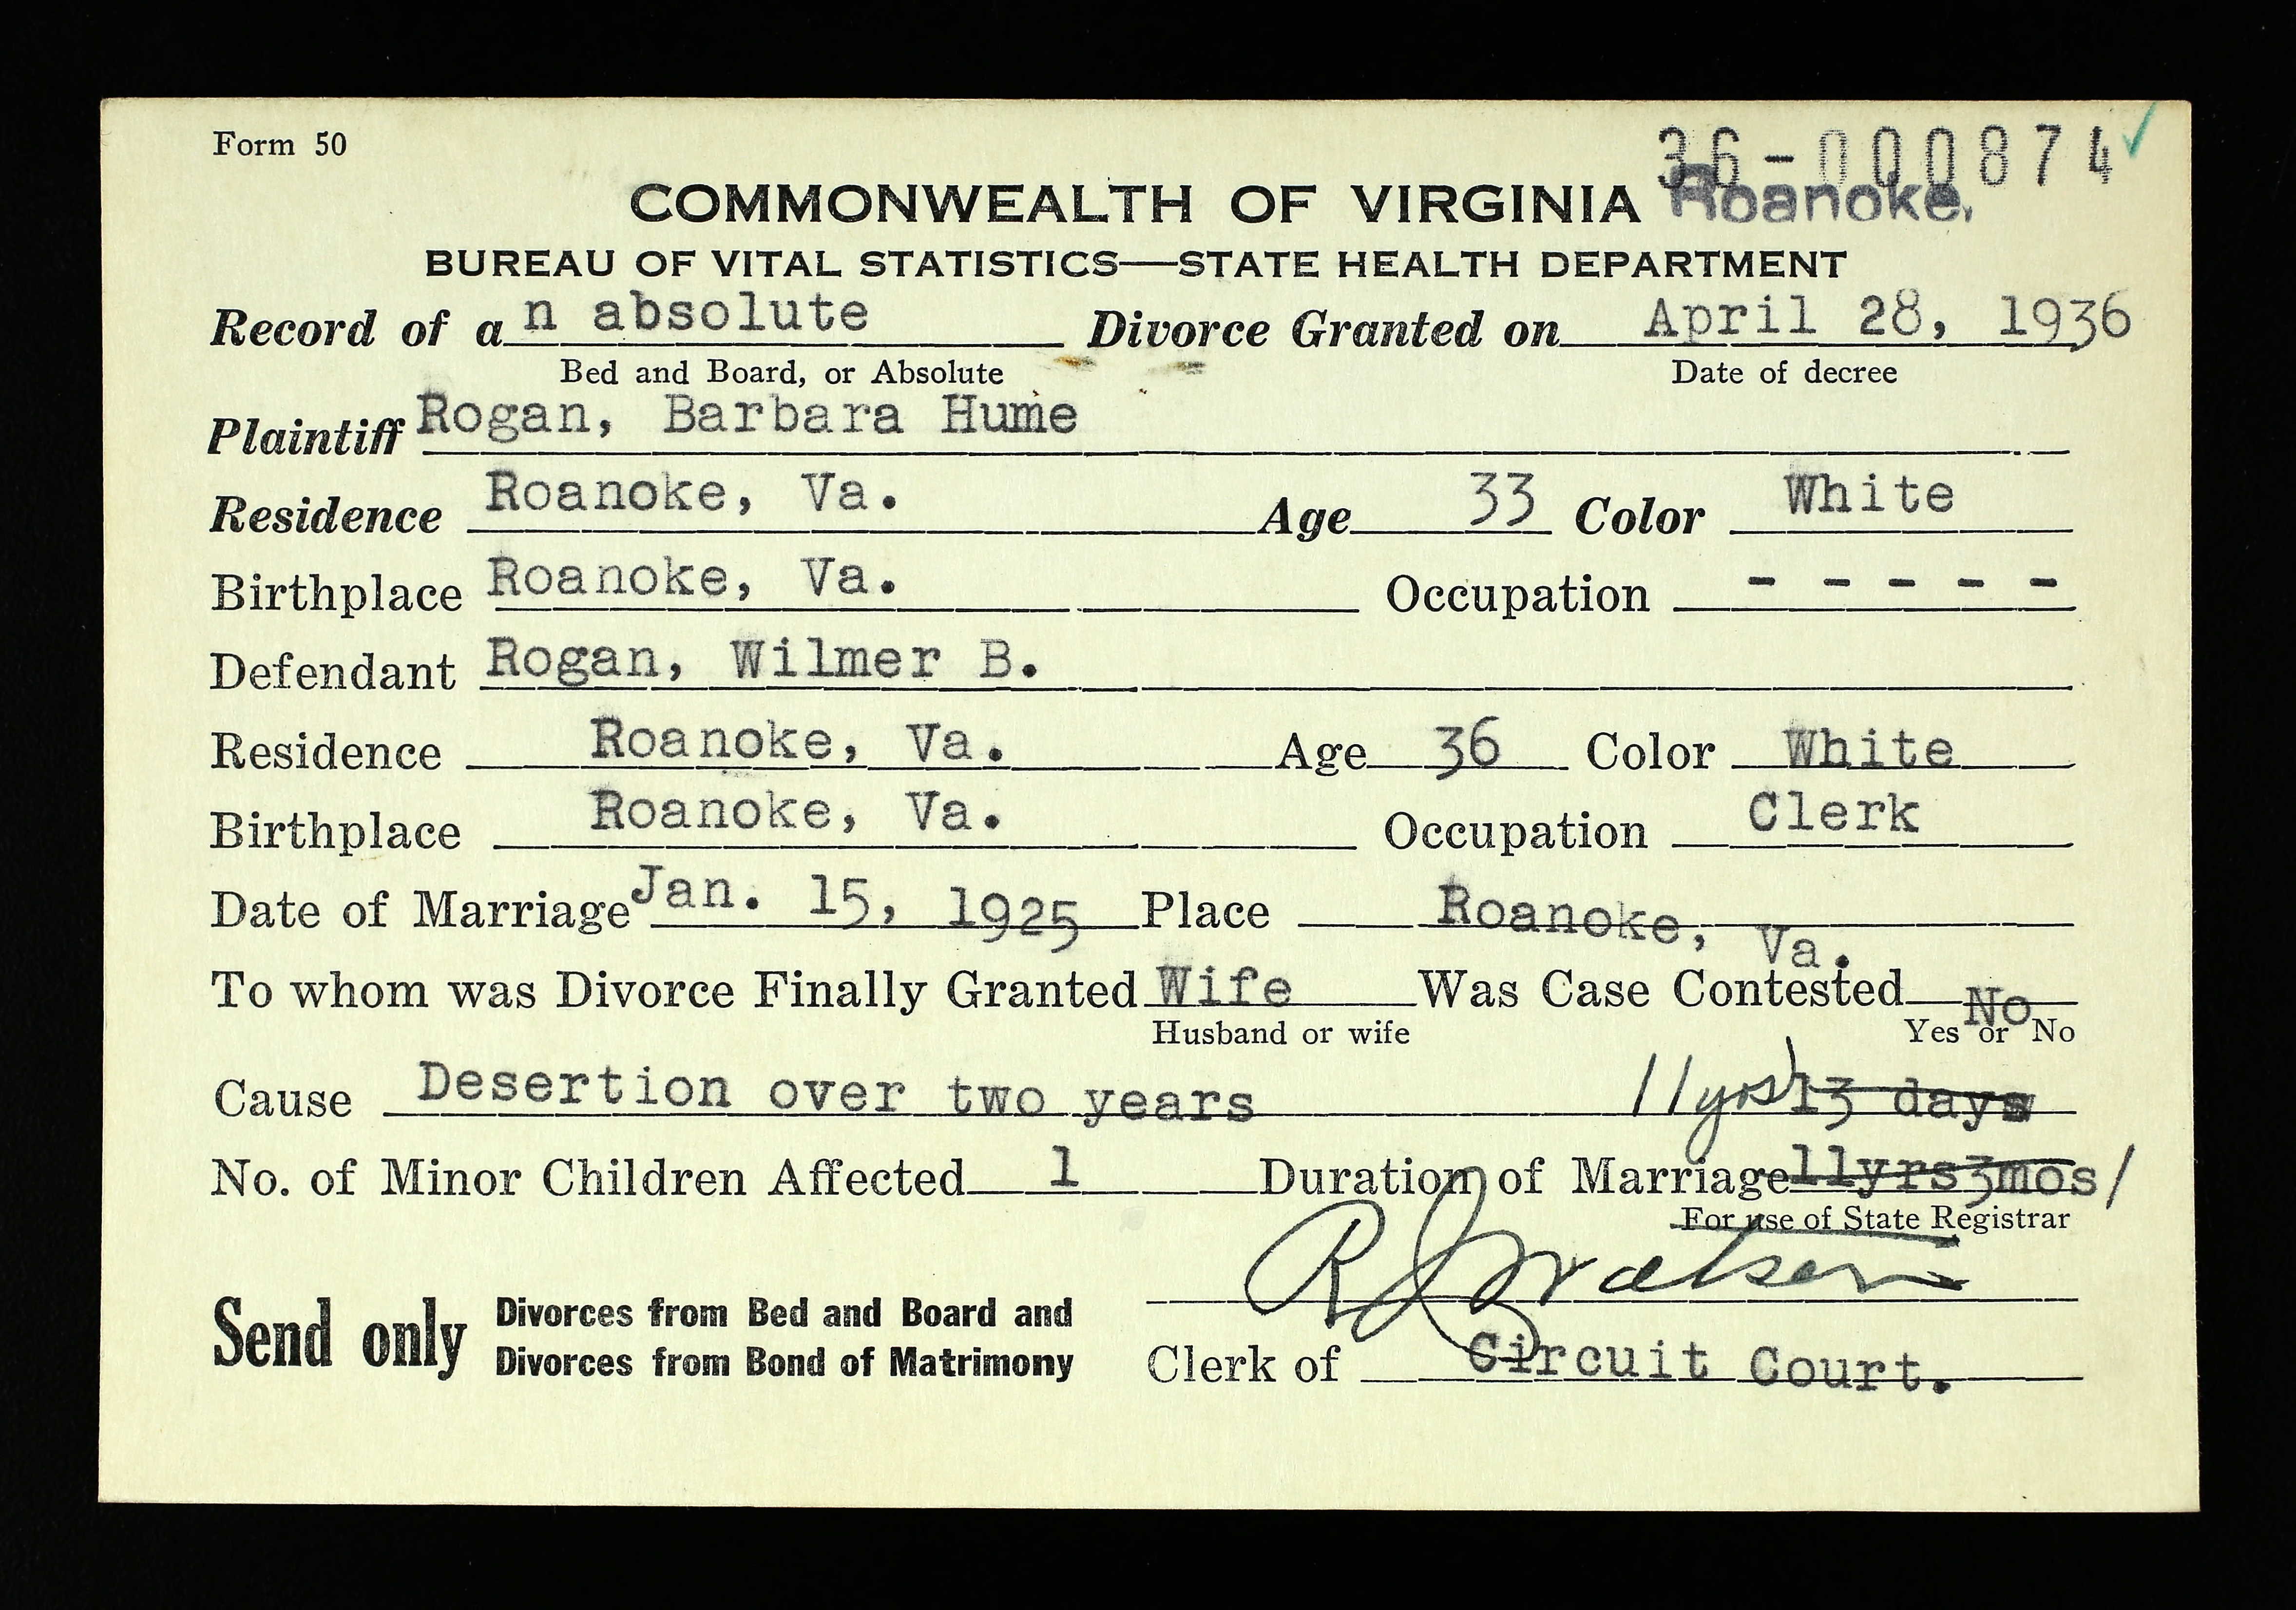 Form 50
36-000874
COMMONWEALTH OF VIRGINIA Roanoke.
BUREAU OF VITAL STATISTICS—STATE HEALTH DEPARTMENT
Record of an absolute Divorce Granted on April 28, 1936
Bed and Board, or Absolute Date of decree
Plaintiff Rogan, Barbara Hume
Residence Roanoke, Va. Age 33 Color White
Birthplace Roanoke, Va. Occupation - - - - -
Defendant Rogan, Wilmer B.
Residence Roanoke, Va. Age 36 Color White
Birthplace Roanoke, Va. Occupation Clerk
Date of Marriage Jan. 15, 1925 Place Roanoke, Va.
To whom was Divorce Finally Granted Wife Was Case Contested No
Husband or wife Yes or No
Cause Desertion over two years 11yrs 13 days
No. of Minor Children Affected 1 Duration of Marriage 11yrs3mos/
For use of State Registrar
R J Watson
Send only Divorces from Bed and Board and
Divorces from Bond of Matrimony
Clerk of Circuit Court.